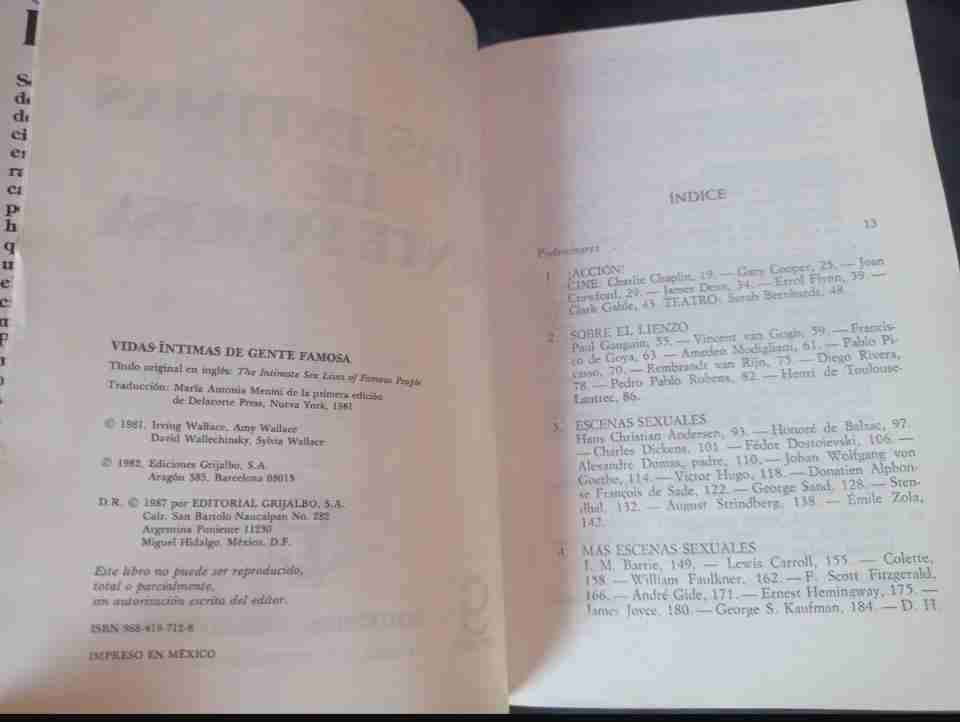 VIDAS ÍNTIMAS DE GENTE FAMOSA
Título original en inglés: The Intimate Sex Lives of Famous People
Traducción: María Antonia Menini de la primera edición
de Delacorte Press, Nueva York, 1981
© 1981, Irving Wallace, Amy Wallace
David Wallechinsky, Sylvia Wallace
© 1982, Ediciones Grijalbo, S.A.
Aragón 385, Barcelona 08013
D.R. © 1987 por EDITORIAL GRIJALBO, S.A.
Calz. San Bartolo Naucalpan No. 282
Argentina Poniente 11230
Miguel Hidalgo, México, D.F.
Este libro no puede ser reproducido,
total o parcialmente,
sin autorización escrita del editor.
ISBN 968-419-712-8
IMPRESO EN MÉXICO
ÍNDICE
Preliminares 13
1. ¡ACCIÓN!
CINE: Charlie Chaplin, 19. — Gary Cooper, 25. — Joan
Crawford, 29. — James Dean, 34. — Errol Flynn, 39. —
Clark Gable, 43. TEATRO: Sarah Bernhardt, 48.
2. SOBRE EL LIENZO
Paul Gauguin, 55. — Vincent van Gogh, 59. — Francis-
co de Goya, 63. — Amedeo Modigliani, 61. — Pablo Pi-
casso, 70. — Rembrandt van Rijn, 75. — Diego Rivera,
78. — Pedro Pablo Rubens, 82. — Henri de Toulouse-
Lautrec, 86.
3. ESCENAS SEXUALES
Hans Christian Andersen, 93. — Honoré de Balzac, 97.
— Charles Dickens, 101. — Fëdor Dostoievski, 106. —
Alexandre Dumas, padre, 110. — Johan Wolfgang von
Goethe, 114. — Victor Hugo, 118. — Donatien Alphon-
se François de Sade, 122. — George Sand, 128. — Sten-
dhal, 132. — August Strindberg, 138. — Émile Zola,
142.
4. MÁS ESCENAS SEXUALES
J. M. Barrie, 149. — Lewis Carroll, 155. — Colette,
158. — William Faulkner, 162. — F. Scott Fitzgerald,
166. — André Gide, 171. — Ernest Hemingway, 175. —
James Joyce, 180. — George S. Kaufman, 184. — D. H.